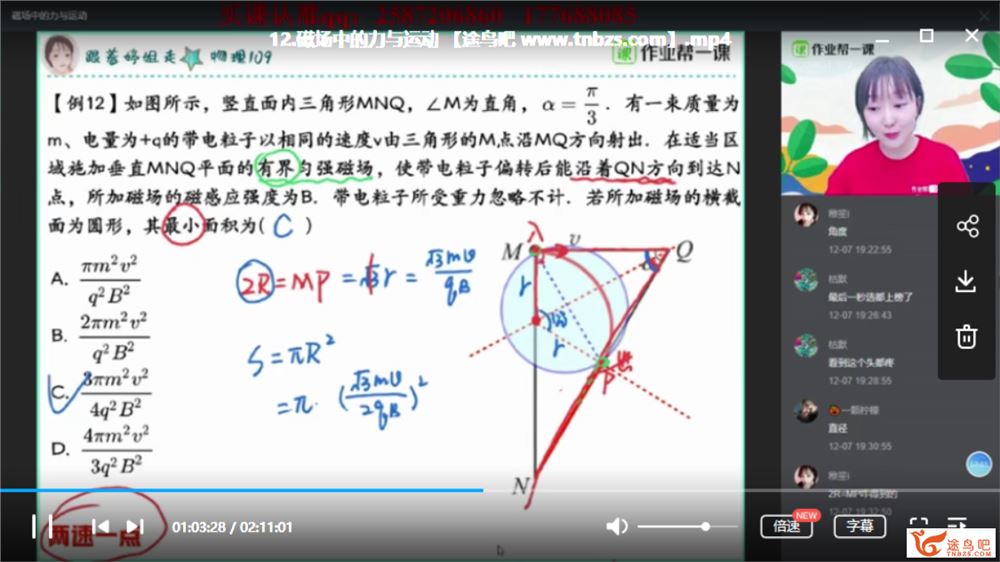 磁场中的力与运动
买课认准qq：2587206860 177688085
12.磁场中的力与运动 【途鸟吧 www.tnbzs.com】.mp4
跟着婷姐走 物理109
课 作业帮一课
课 作业帮一课
【例12】如图所示，竖直面内三角形MNQ，∠M为直角，α = π/3．有一束质量为
m、电量为+q的带电粒子以相同的速度v由三角形的M点沿MQ方向射出．在适当区
域施加垂直MNQ平面的有界匀强磁场，使带电粒子偏转后能沿着QN方向到达N
点，所加磁场的磁感应强度为B．带电粒子所受重力忽略不计．若所加磁场的横截
面为圆形，其最小面积为( C )
A. πm²v²/q²B²
B. 2πm²v²/q²B²
C. 3πm²v²/4q²B²
D. 4πm²v²/3q²B²
2R = MP = √3r = √3mv/qB
S = πR²
= π·(√3mv/2qB)²
M
入
v
Q
r
r
P
出
N
两速一点
角度
12-07 19:22:55
枯默
最后一秒选都上榜了
12-07 19:26:43
枯默
看到这个头都疼
12-07 19:28:55
一颗柠檬
直径
12-07 19:30:55
12-07 19:32:50
01:03:28 / 02:11:01
倍速
NEW
字幕
途鸟吧
TNBZS.COM